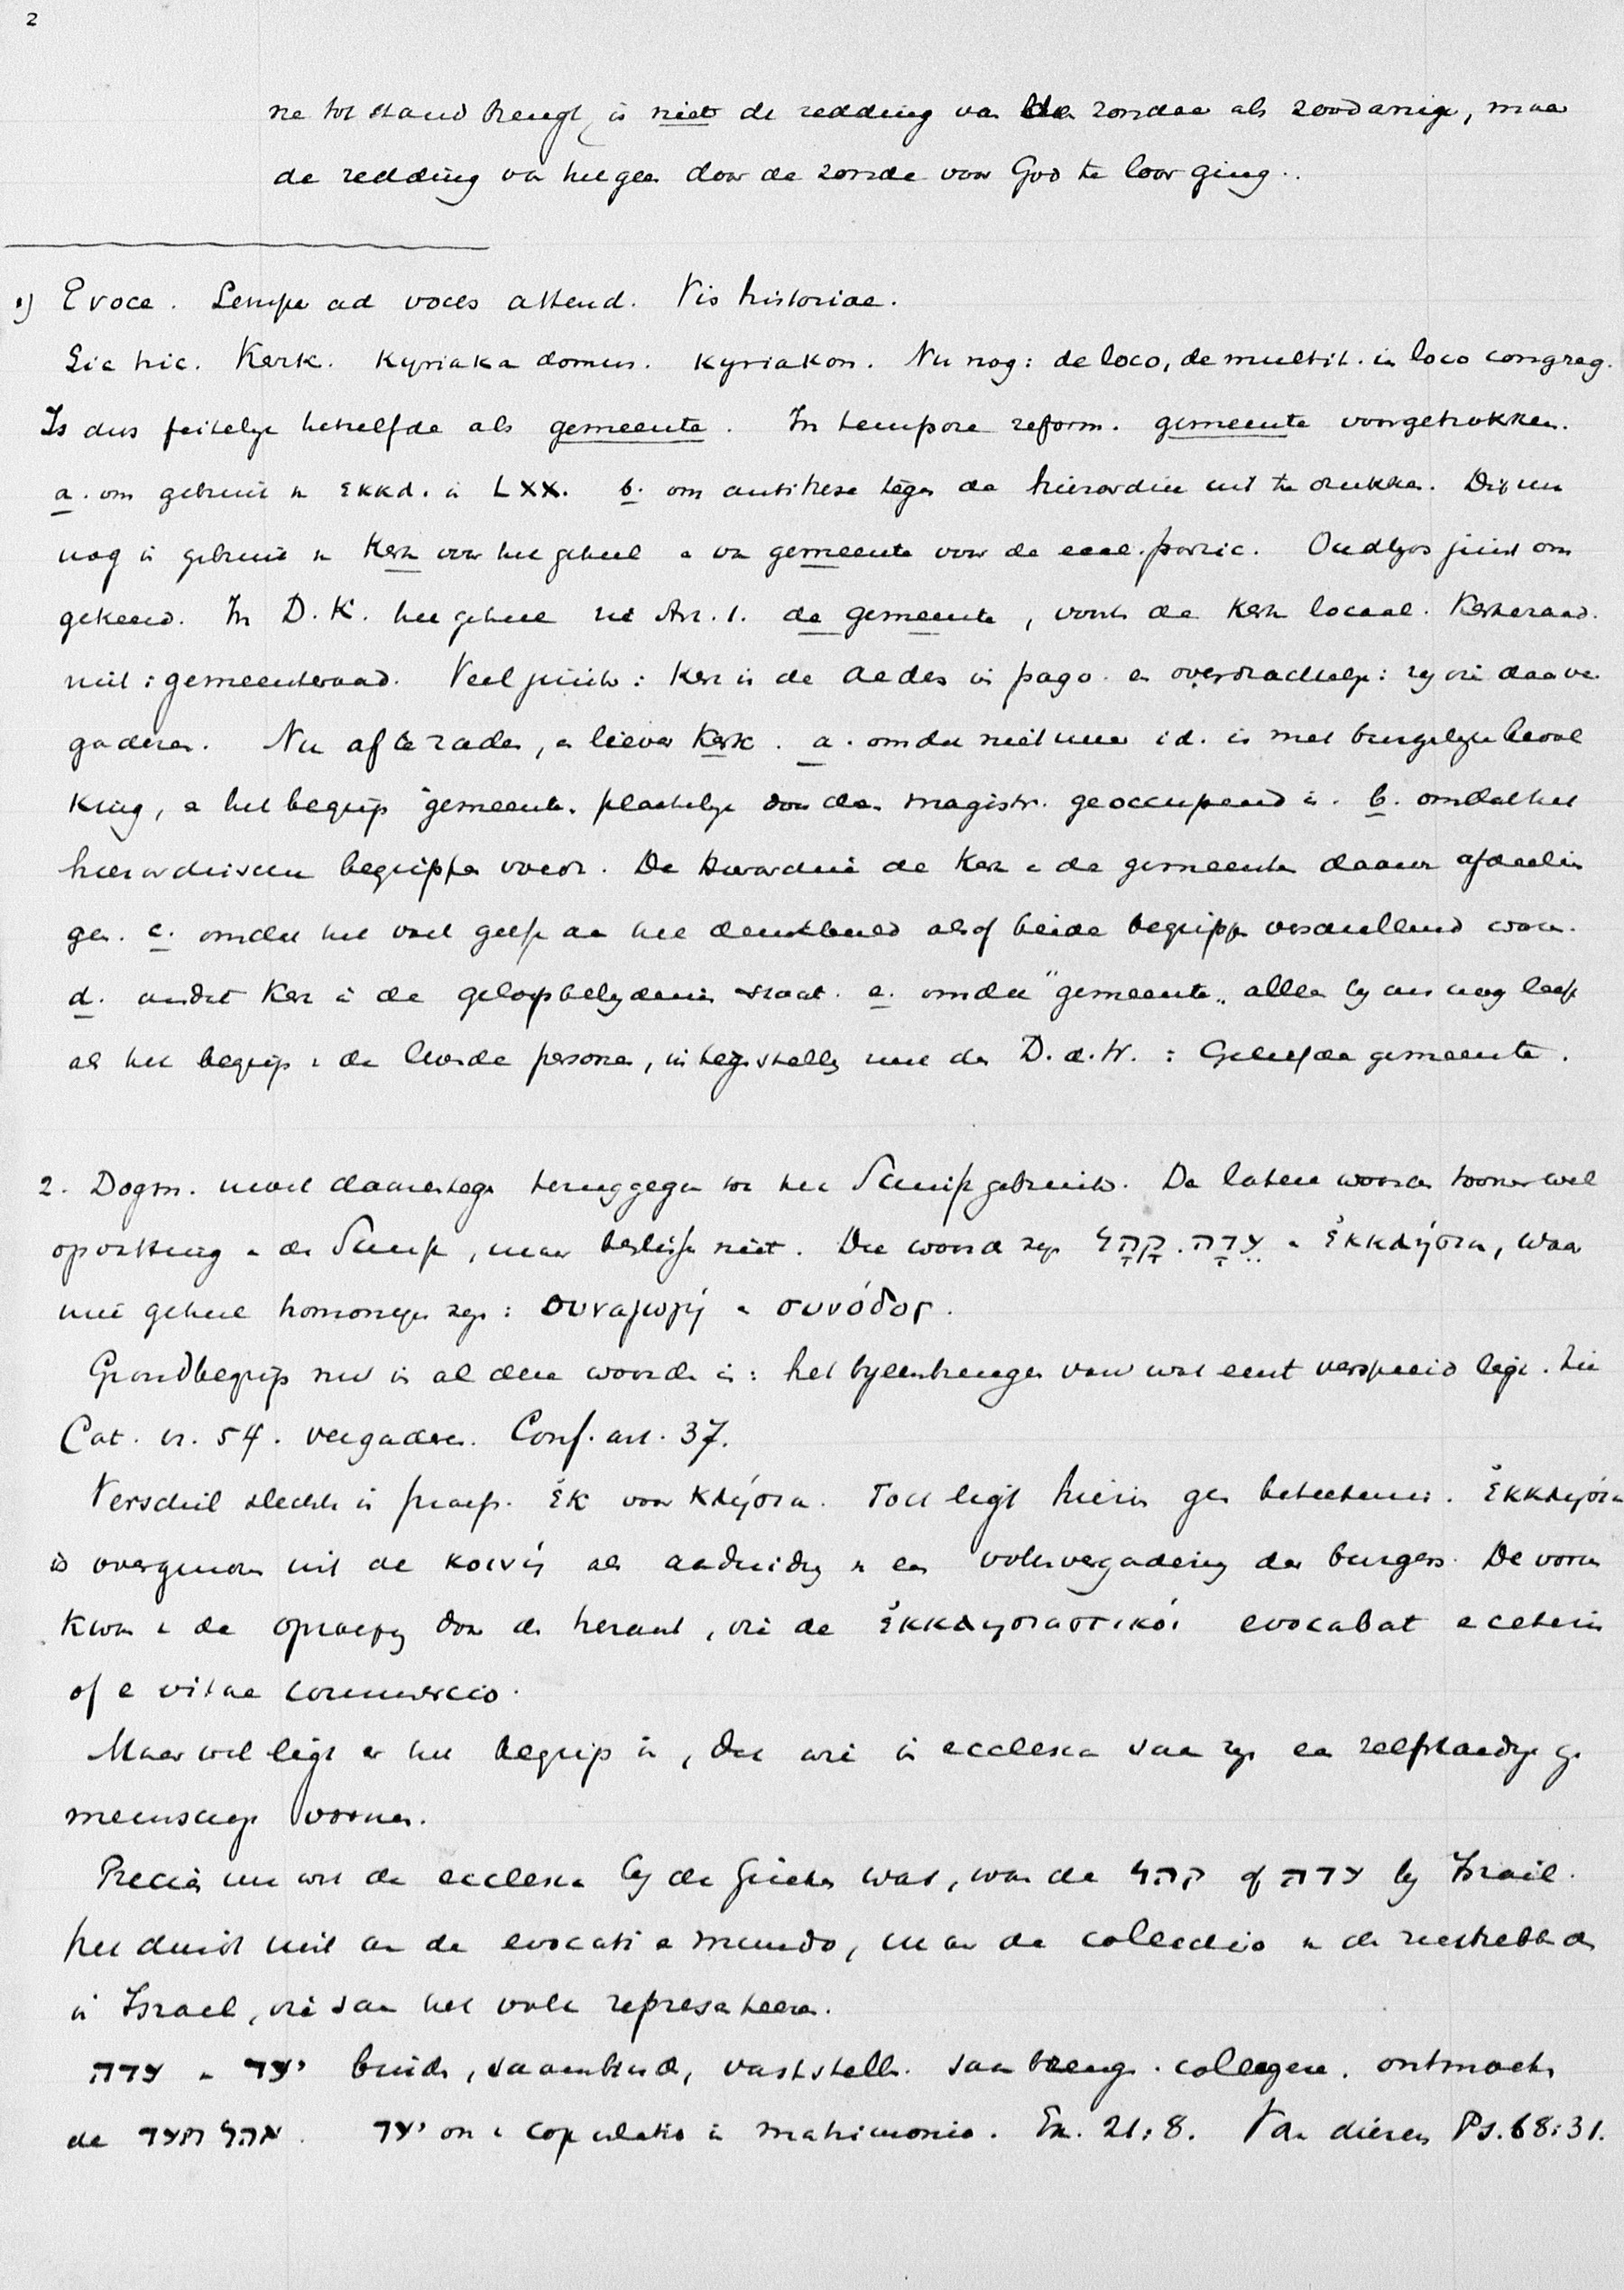 2
ne tot stand brengt, is niet de redding van den zondaar als zoodanig, maar
de redding van hetgeen door de zonde voor God te loor ging..
1) E voce. Semper ad voces attend. Vis historiae.
Sic hic. Kerk. Kyriaka domus. Kyriakon. Nu nog: de loco, de multit. in loco congreg.
Is dus feitelijk hetzelfde als gemeente. In tempore reform. gemeente voorgetrokken.
a. om gebruik v ἐκκλ. in LXX. b. om antithese tegen de hierarchie uit te drukken. Dit nu
nog in gebruik v Kerk voor het geheel en van gemeente voor de eccl. partic. Oudtijds juist om
gekeerd. In D. K. het geheel zie Art. 1. de gemeente, voorts de Kerk locaal. Kerkeraad.
niet: gemeenteraad. Veel juister: Kerk is de aedes in pago en overdrachtelijk: zij die daar ver
gaderen. Nu af te raden, en liever Kerk. a. omdat niet meer id. is met burgerlijke bevol
king, en het begrip "gemeente" plaatselijk door den magistr. geoccupeerd is. b. omdat het
hierarchischen begrippen voedt. De hierarchie de Kerk en de gemeenten daarvan afdeelin
gen. c. omdat het voet geeft aan het denkbeeld alsof beide begrippen verschillend waren.
d. omdat Kerk in de geloofsbelijdenis staat. e. omdat "gemeente" alleen bij ons nog leeft
als het begrip v de levende personen, in tegenstelling met den D. d. W. : Geliefde gemeente.
2. Dogm. moet daarentegen teruggegaan tot het Schriftgebruik. De latere woorden toonen wel
opvatting v de Schrift, maar beslissen niet. Die woorden zijn קָהָל. עֵדָה en ἐκκλησία, waar
mee geheel homoniem zijn: συναγωγή en συνόδος.
Grondbegrip nu in al deze woorden is: het bijeenbrengen van wat eerst verspreid ligt. Zie
Cat. vr. 54. vergaderen. Conf. art. 37.
Verschil slechts in praep. ἐκ voor κλησία. Toch ligt hierin geen beteekenis. ἐκκλησία
is overgenomen uit de κοινή als aanduiding v een volksvergadering der burgers. De vorm
kwam v de oproeping door den heraut, die de ἐκκλησιαστικοί evocabat e ceteris
of e vitae commercio.
Maar wel ligt er het begrip in, dat wie in ecclesia saam zijn een zelfstandige ge
meenschap vormen.
Precies nu wat de ecclesia bij de Grieken was, was de קהל of עדה bij Israel.
het duidt niet aan de evocati e mundo, maar de collectio v de rechthebbenden
in Israel, die saam het volk representeeren.
עדה v יעד binden, saambinden, vaststellen. saambrengen. collegere. ontmoeten
de אהל מועד. יעד ook v copulatio in matrimonio. Ex. 21:8. Van dieren Ps. 68:31.